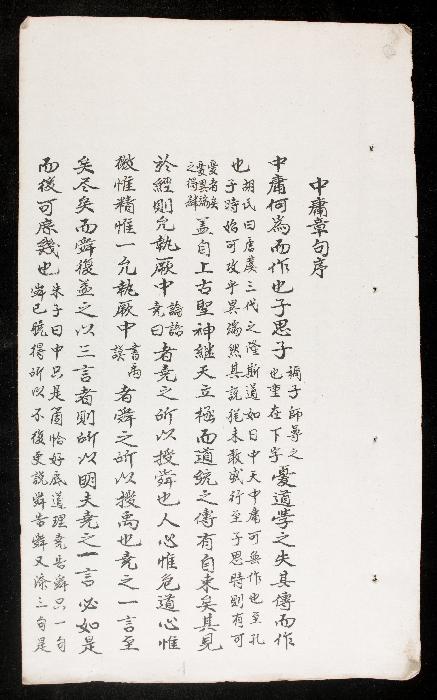 中庸章句序
中庸何為而作也子思子憂道學之失其傳而作
也胡氏曰唐虞三代之隆斯道如日中天中庸可無作也至孔
子時始可攻乎異端然其說猶未敢盛行至子思時則有可
憂者矣憂異端之得肆蓋自上古聖神繼天立極而道統之傳有自來矣其見
於經則允執厥中論語堯曰者堯之所以授舜也人心惟危道心惟
微惟精惟一允執厥中書禹謨者舜之所以授禹也堯之一言至
矣尽矣而舜復益之以三言者則所以明夫堯之一言必如是
而後可庶幾也朱子曰中只是箇恰好底道理堯告舜只一句
舜已曉得所以不復更說舜告禹又添三句是